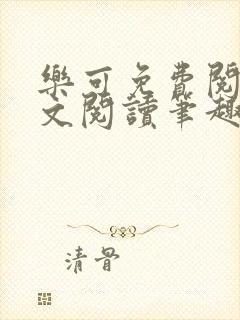 樂可免費閱
文閱讀筆趣
清骨